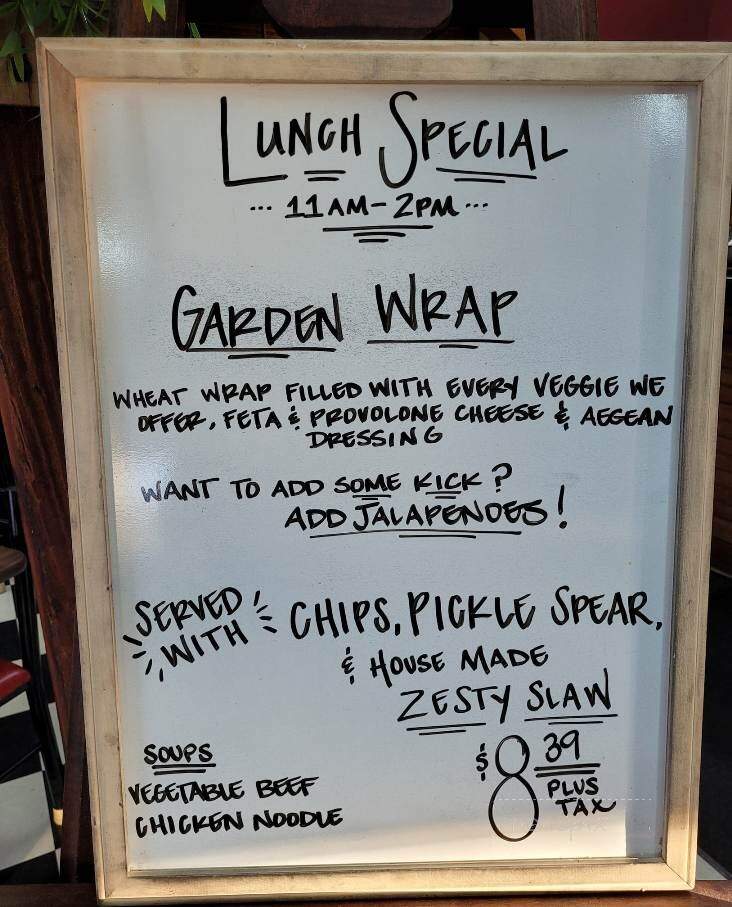 LUNCH SPECIAL
... 11AM-2PM ...
GARDEN WRAP
WHEAT WRAP FILLED WITH EVERY VEGGIE WE
OFFER, FETA & PROVOLONE CHEESE & AEGEAN
DRESSING
WANT TO ADD SOME KICK?
ADD JALAPENOES!
SERVED
WITH
CHIPS, PICKLE SPEAR,
& HOUSE MADE
ZESTY SLAW
SOUPS
VEGETABLE BEEF
CHICKEN NOODLE
$8 39
PLUS
TAX